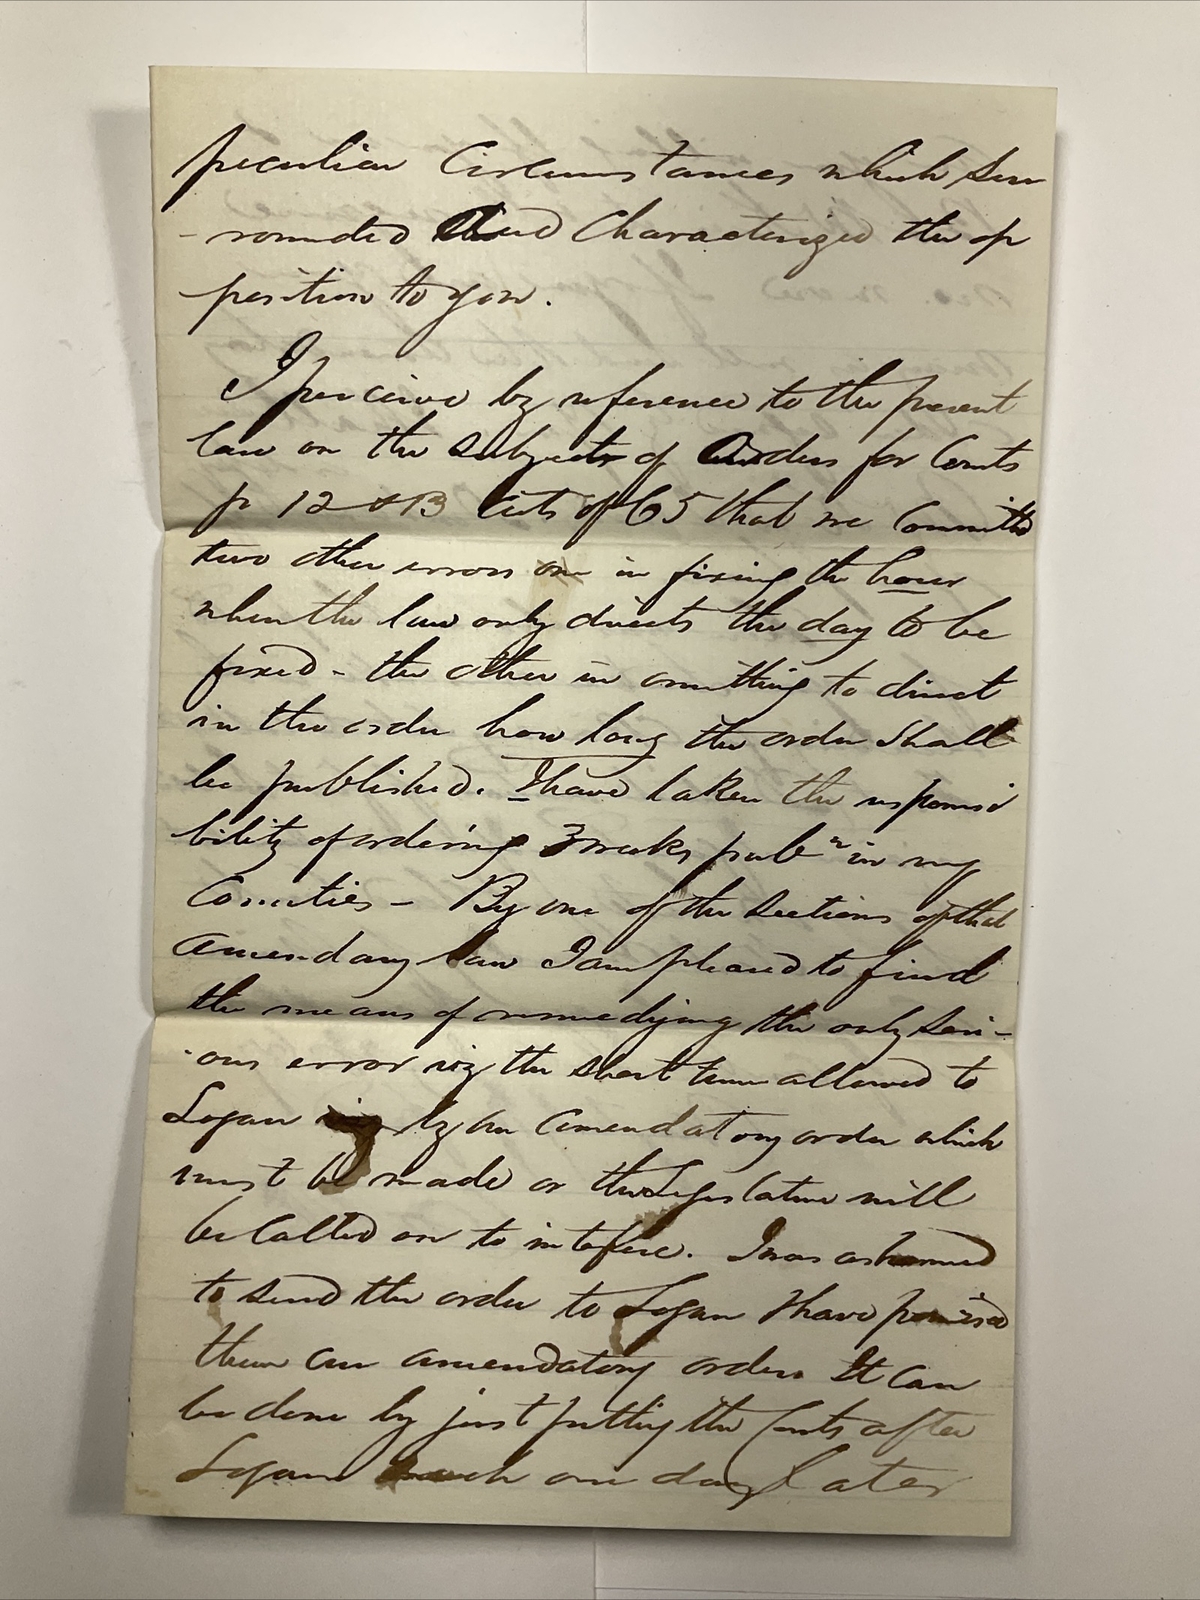 peculiar Circumstances which Sur
-rounded and Characterized the op
-position to you.
I perceive by reference to the present
law on the subjects of Orders for Courts
p 12 & 13 Acts of 65 that we Committed
two other errors one in fixing the hour
when the law only directs the day to be
fixed - the other in omitting to direct
in the order how long the order Shall
be published. I have taken the responsi
bility of ordering 3 weeks pubn in my
Counties - By one of the Sections of that
Amendary law I am pleased to find
the means of remedying the only Seri-
-ous error viz the short time allowed to
Logan by an amendatory order which
must be made or the Legislature will
be Called on to interfere. I was ashamed
to send the order to Logan I have promised
them an amendatory order It Can
be done by just putting the Courts after
Logan each one day later